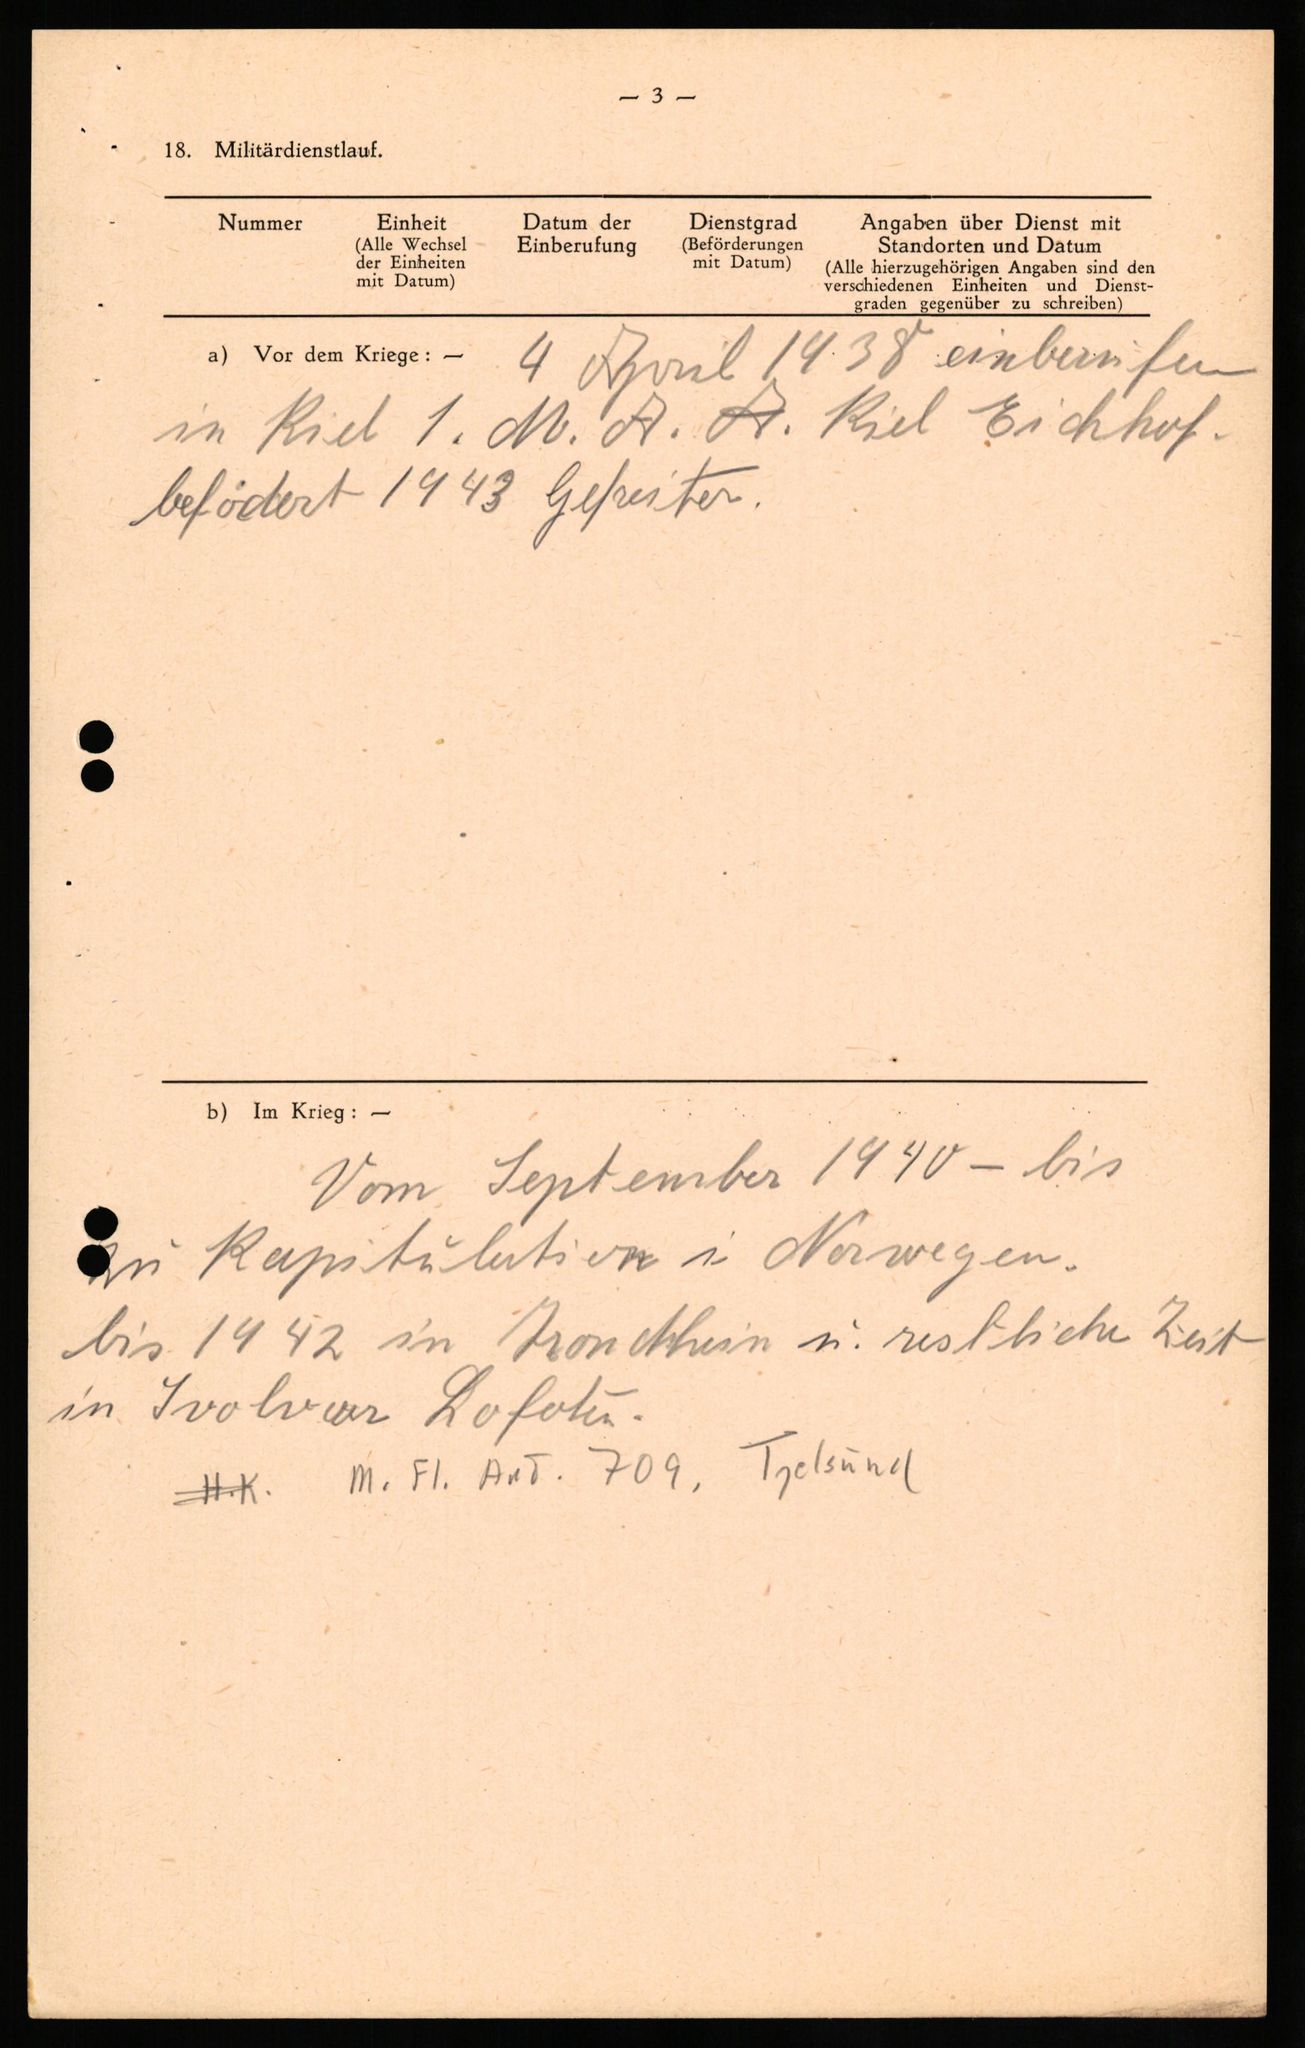 — 3 —
18. Militärdienstlauf.
Nummer
Einheit
(Alle Wechsel
der Einheiten
mit Datum)
Datum der
Einberufung
Dienstgrad
(Beförderungen
mit Datum)
Angaben über Dienst mit
Standorten und Datum
(Alle hierzugehörigen Angaben sind den
verschiedenen Einheiten und Dienst-
graden gegenüber zu schreiben)
a) Vor dem Kriege: — 4 April 1938 einberufen
in Kiel 1. M. A. A. Kiel Eichhof.
befödert 1943 Gefreiter.
b) Im Krieg: —
Vom September 1940 — bis
zu Kapitulation i Norwegen.
bis 1942 in Trondhein u. restliche Zeit
in Svolvaer Lofoten.
H.K. M. Fl. Art. 709, Tjelsund